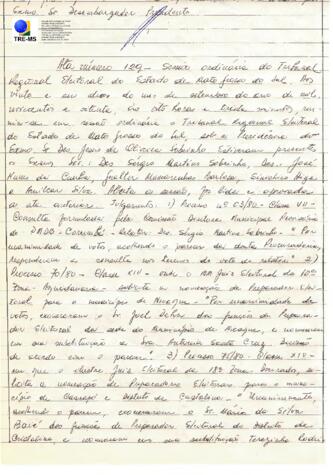 Exmo. Sr. Desembargador Presidente
TRE-MS
Ata número 129 - Sessão ordinária do Tribunal
Regional Eleitoral do Estado de Mato Grosso do Sul. Aos
vinte e um dias do mês de setembro do ano de mil,
novecentos e oitenta, às oito horas e trinta minutos, reu-
niu-se em sessão ordinária o Tribunal Regional Eleitoral
do Estado de Mato Grosso do Sul, sob a Presidência do
Exmo. Sr. Des. Jesus de Oliveira Sobrinho. Estiveram presentes
os Exmos. Srs.: Des. Sérgio Martins Sobrinho, Des. José
Nunes da Cunha,
e Amilcar Silva. Aberta a sessão, foi lida e aprovada
a ata anterior. Julgamento: 1) Processo nº 03/80 - Classe VII -
Consulta formulada pela Comissão Diretora Municipal Provisória
do PMDB - Corumbá - Relator: Des. Sérgio Martins Sobrinho - "Por
unanimidade de votos, acolhendo o parecer da douta Procuradoria,
responderam a consulta nos termos do voto do relator". 2)
Processo 70/80 - Classe XIII - onde o MM Juiz Eleitoral da 10ª
Zona - Aquidauana - solicita a nomeação de Preparador Elei-
toral para o município de Nioaque - "Por unanimidade de
votos, exoneraram o Sr. Joel da função de Prepara-
dor Eleitoral da sede do Município de Nioaque, e nomearam
em sua substituição a Sra. Antonia Santa Cruz
de acordo com o parecer". 3) Processo 75/80 - Classe XIII -
em que o ilustre Juiz Eleitoral da 18ª Zona Dourados, so-
licita a nomeação de Preparadores Eleitorais para o muni-
cípio de Caarapó e distrito de Cristalina - "Unanimemente,
acolhendo o parecer, exoneraram o Sr. Mario da Silva
da função de Preparador Eleitoral do distrito de
Cristalina, e nomearam em sua substituição Terezinha Rodri